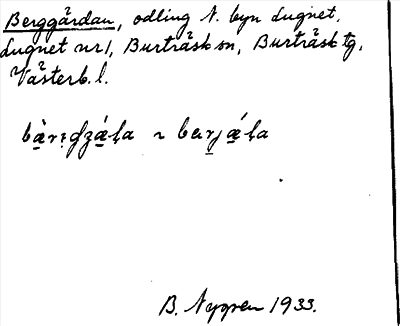 Berggårdan, odling N. byn Lugnet,
Lugnet nr 1, Burträsk sn, Burträsk tg,
Västerb. l.
B. Nygren 1933.